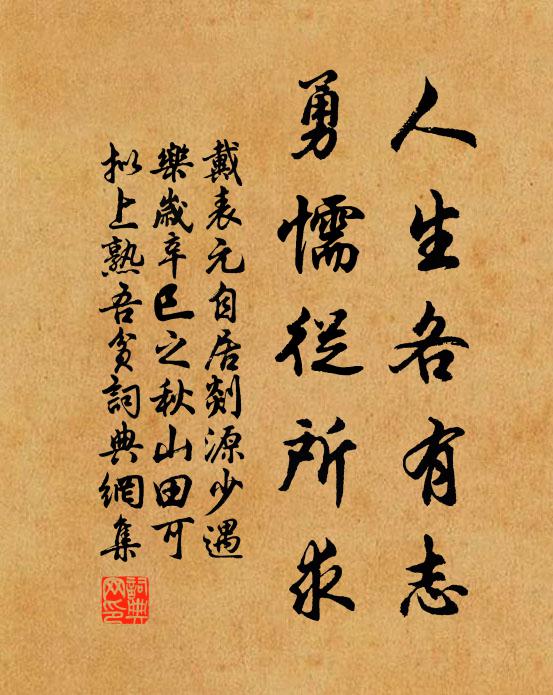 人生各有志
勇懦從所求
戴表元自居剡源少遇
樂歲辛巳之秋山田可
擬上熟吾貧詞典網集
詞典網印